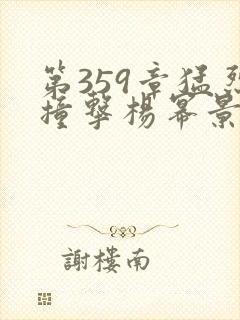 第359章猛烈
撞擊楊冪景
謝樓南